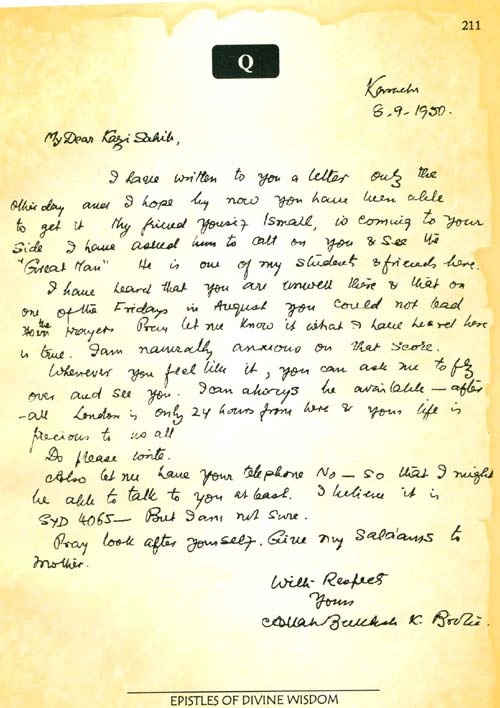 211
Q
Karachi
8-9-1950.
My Dear Kazi Sahib,
I have written to you a letter only the
other day and I hope by now you have been able
to get it My friend Yousif Ismail, is coming to your
side I have asked him to call on you & see the
"Great Man" He is one of my students & friends here.
I have heard that you are unwell there & that on
one of the Fridays in August you could not lead
the Prayers Pray let me know if what I have heard here
is true. I am naturally anxious on that score.
Whenever you feel like it, you can ask me to fly
over and see you. I can always be available — after
-all London is only 24 hours from here & your life is
precious to us all
Do please write.
Also let me have your telephone No — so that I might
be able to talk to you at least. I believe it is
SYD 4065 — But I am not sure.
Pray look after yourself. Give my Salaams to
Mother.
With Respects
Yours
Allah Bukhsh K. Brohi.
EPISTLES OF DIVINE WISDOM